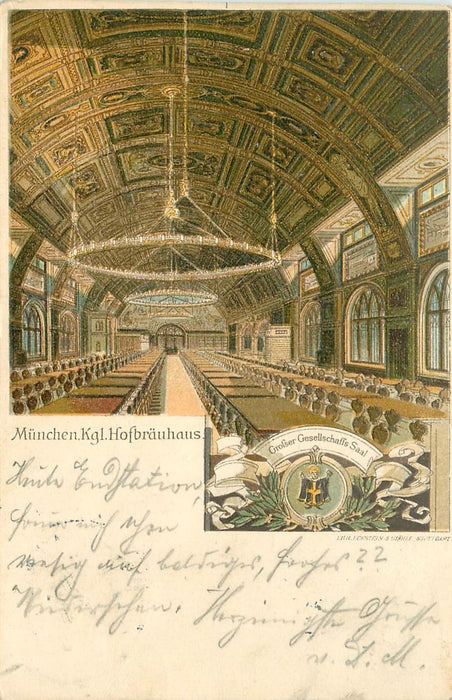 München, Kgl. Hofbräuhaus.
Großer Gesellschafts Saal
LITH. ECKSTEIN & STÄHLE, STUTTGART
Heute Endstation,
freue mich schon
riesig auf baldiges, frohes ??
Wiedersehen. Herzinnigste Grüsse
v. D. M.